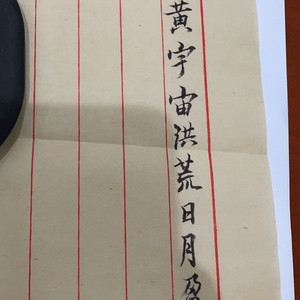 黃宇宙洪荒日月盈